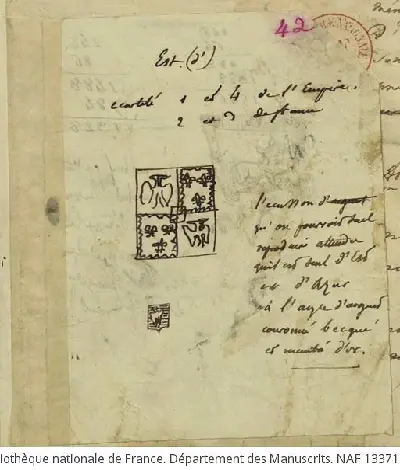 42
Est. (d')
ecartelé 1 et 4 de l'Empire.
2 et 3 de france
l'ecusson d'argent
qu'on pourroit seul
reproduire attendu
qu'il est seul d'Est
est d'Azur
à l'aigle d'argent
couronné becqué
et membré d'or.
liothèque nationale de France. Département des Manuscrits. NAF 13371